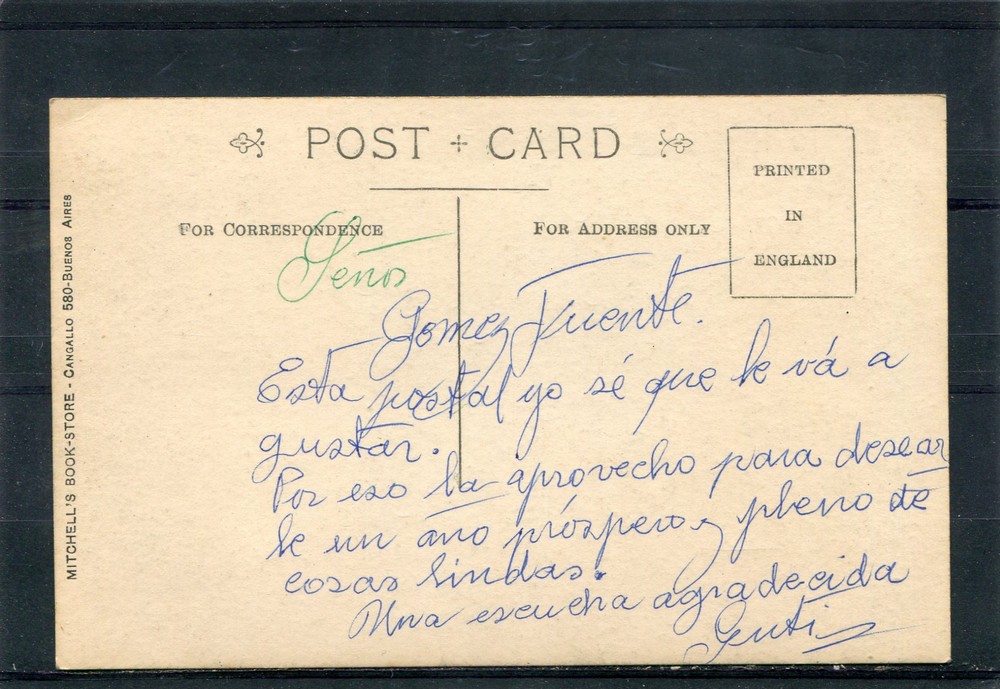 POST CARD
PRINTED
IN
ENGLAND
FOR CORRESPONDENCE
FOR ADDRESS ONLY
MITCHELL'S BOOK-STORE - CANGALLO 580-BUENOS AIRES
Señor
Gomez Fuente.
Esta postal yo sé que le vá a
gustar.
Por eso la aprovecho para desear
le un año próspero y pleno de
cosas lindas.
Una escucha agradecida